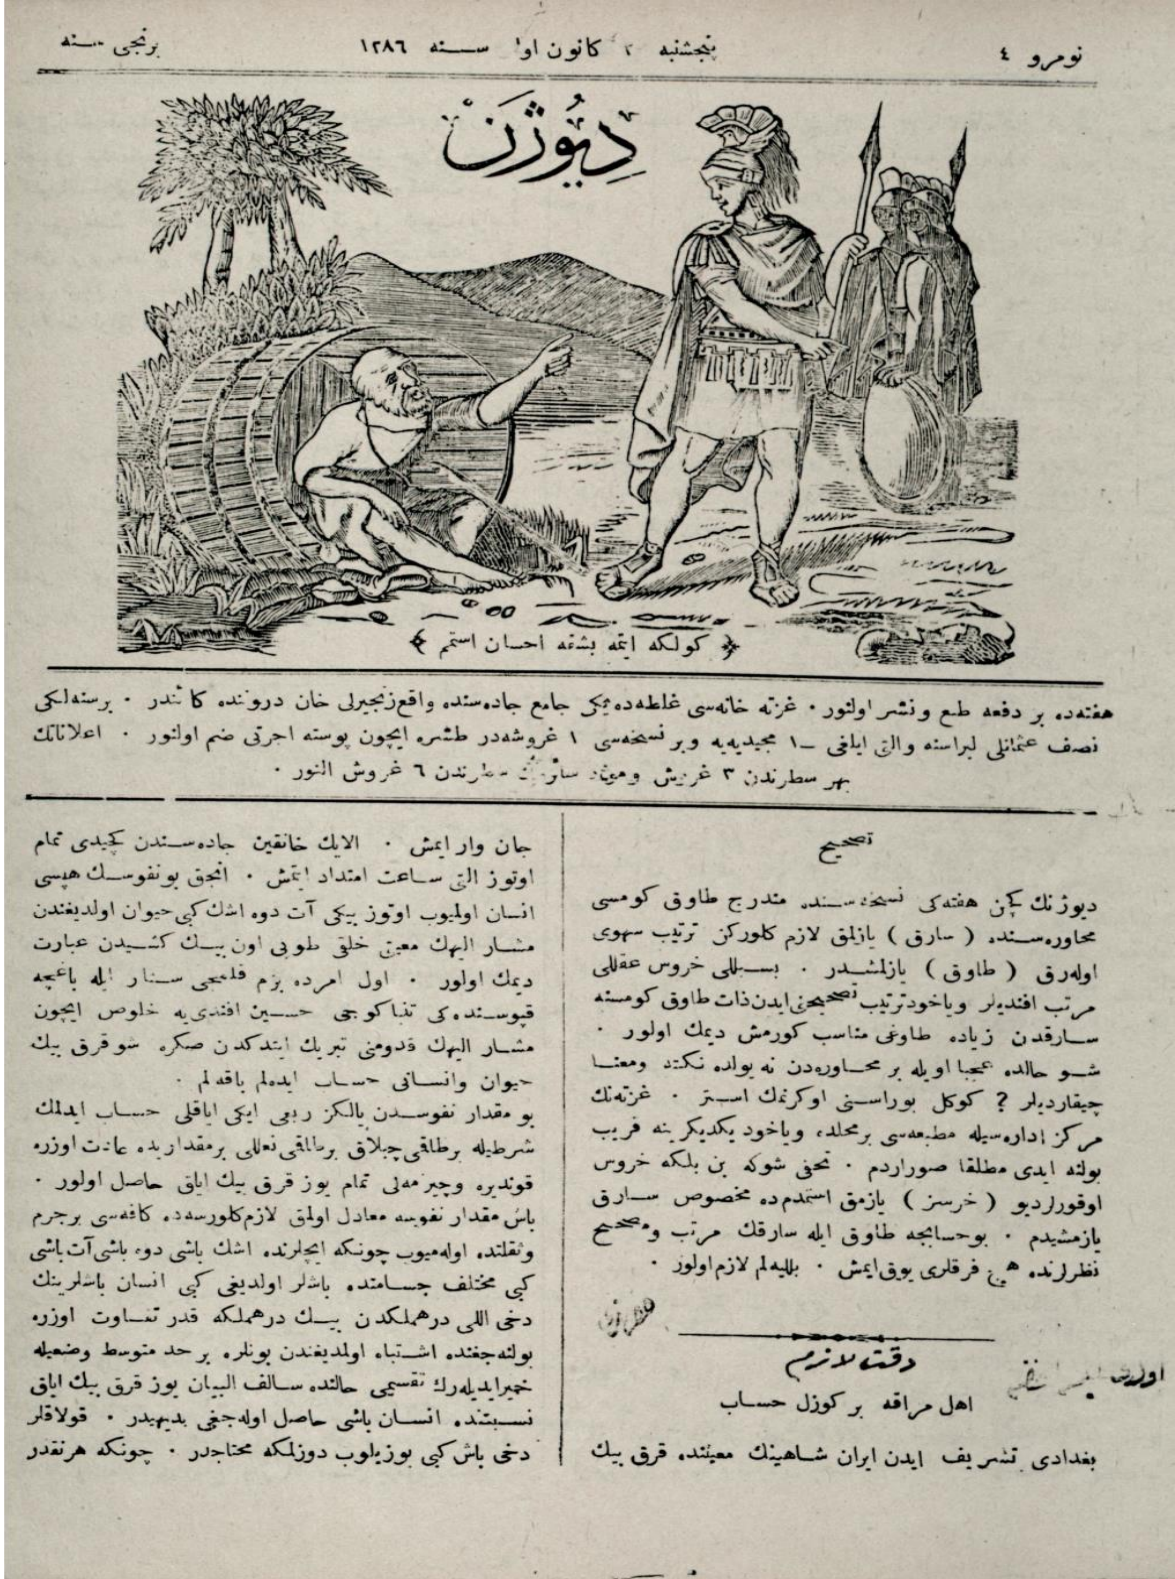 نومرو ٤
پنجشنبه ٢ كانون اول سنه ١٢٨٦
برنجی سنه
ديوژن
كولكه ايتمه بشقه احسان استمم
هفته‌ده بر دفعه طبع ونشر اولنور · غزته خانه‌سی غلطه‌ده یکی جامع جاده‌سنده واقع زنجیرلی خان دروننده كائندر · برسنه‌لکی
نصف عثمانلی لیراسنه والتی ایلغی ١٠ مجیدیه‌یه وبر نسخه‌سی ١ غروشه‌در طشره ایچون پوسته اجرتی ضم اولنور · اعلاناتك
بهر سطرندن ٣ غروش سطرندن ٦ غروش النور ·
تصحیح
دیوژنك كچن هفته‌كی نسخه‌سنده مندرج طاوق كومسی
محاوره‌سنده ( سارق ) یازلمق لازم كلوركن ترتیب سهوی
اوله‌رق ( طاوق ) یازلمشدر · بسبللی خروس عقللی
مرتب افندیلر ویاخود ترتیب تصحیحنی ایدن ذات طاوق كومسنه
سارقدن زیاده طاوغی مناسب كورمش دیمك اولور ·
شو حالده عجبا اویله بر محاوره‌دن نه یولده نكته ومعنا
چیقاردیلر ? كوكل بوراسنی اوكرنمك استر · غزته‌نك
مركز اداره‌سیله مطبعه‌سی برمحلده ویاخود یكدیكرینه قریب
بولنه ایدی مطلقا صوراردم · تحفی شوكه بن بلكه خروس
اوقورلر دیو ( خرسز ) یازمق استمدم‌ده مخصوص سارق
یازمشیدم · بوحسابجه طاوق ایله سارقك مرتب ومصحح
نظرلرنده هیچ فرقلری یوق ایمش · بللیه‌لم لازم اولور ·
دقت لازم
اهل مراقه بر كوزل حساب
بغدادی تشریف ایدن ایران شاهینك معیتنده قرق بیك
جان وار ایمش · الایك خانقین جاده‌سندن كچیدی تمام
اوتوز التی ساعت امتداد ایتمش · انجق بو نفوسك هپسی
انسان اولمیوب اوتوز بیكی آت دوه اشك كبی حیوان اولدیغندن
مشار الیهك معیتی خلقی طوپی اون بیك كشیدن عبارت
دیمك اولور · اول امرده بزم قلمجی سنار ایله باغچه
قپوسنده‌كی تنباكوجی حسین افندی‌یه خلوص ایچون
مشار الیهك قدومنی تبریك ایتدكدن صكره شو قرق بیك
حیوان وانسانی حساب ایده‌لم باقه‌لم ·
بو مقدار نفوسدن یالكز ربعی ایكی ایاقلی حساب ایدلمك
شرطیله بر طاقمی چپلاق بر طاقمی نعللی بر مقداریده عادت اوزره
قوندیره وچیزمه‌لی تمام یوز قرق بیك ایاق حاصل اولور ·
باش مقدار نفوسه معادل اولمق لازم كلورسه‌ده كافه‌سی بر جرم
وثقلتده اوله‌میوب چونكه ایچلرنده اشك باشی دوه باشی آت باشی
كبی مختلف جسامتده باشلر اولدیغی كبی انسان باشلرینك
دخی اللی درهملكدن بیك درهملكه قدر تفاوت اوزره
بولنه‌جغنده اشتباه اولمدیغندن بونلره بر حد متوسط وضعیله
خمیر ایدیله‌رك تقسیمی حالنده سالف البیان یوز قرق بیك ایاق
نسبتنده انسان باشی حاصل اوله‌جغی بدیهیدر · قولاقلر
دخی باش كبی بوزیلوب دوزلمكه محتاجدر · چونكه هر نقدر